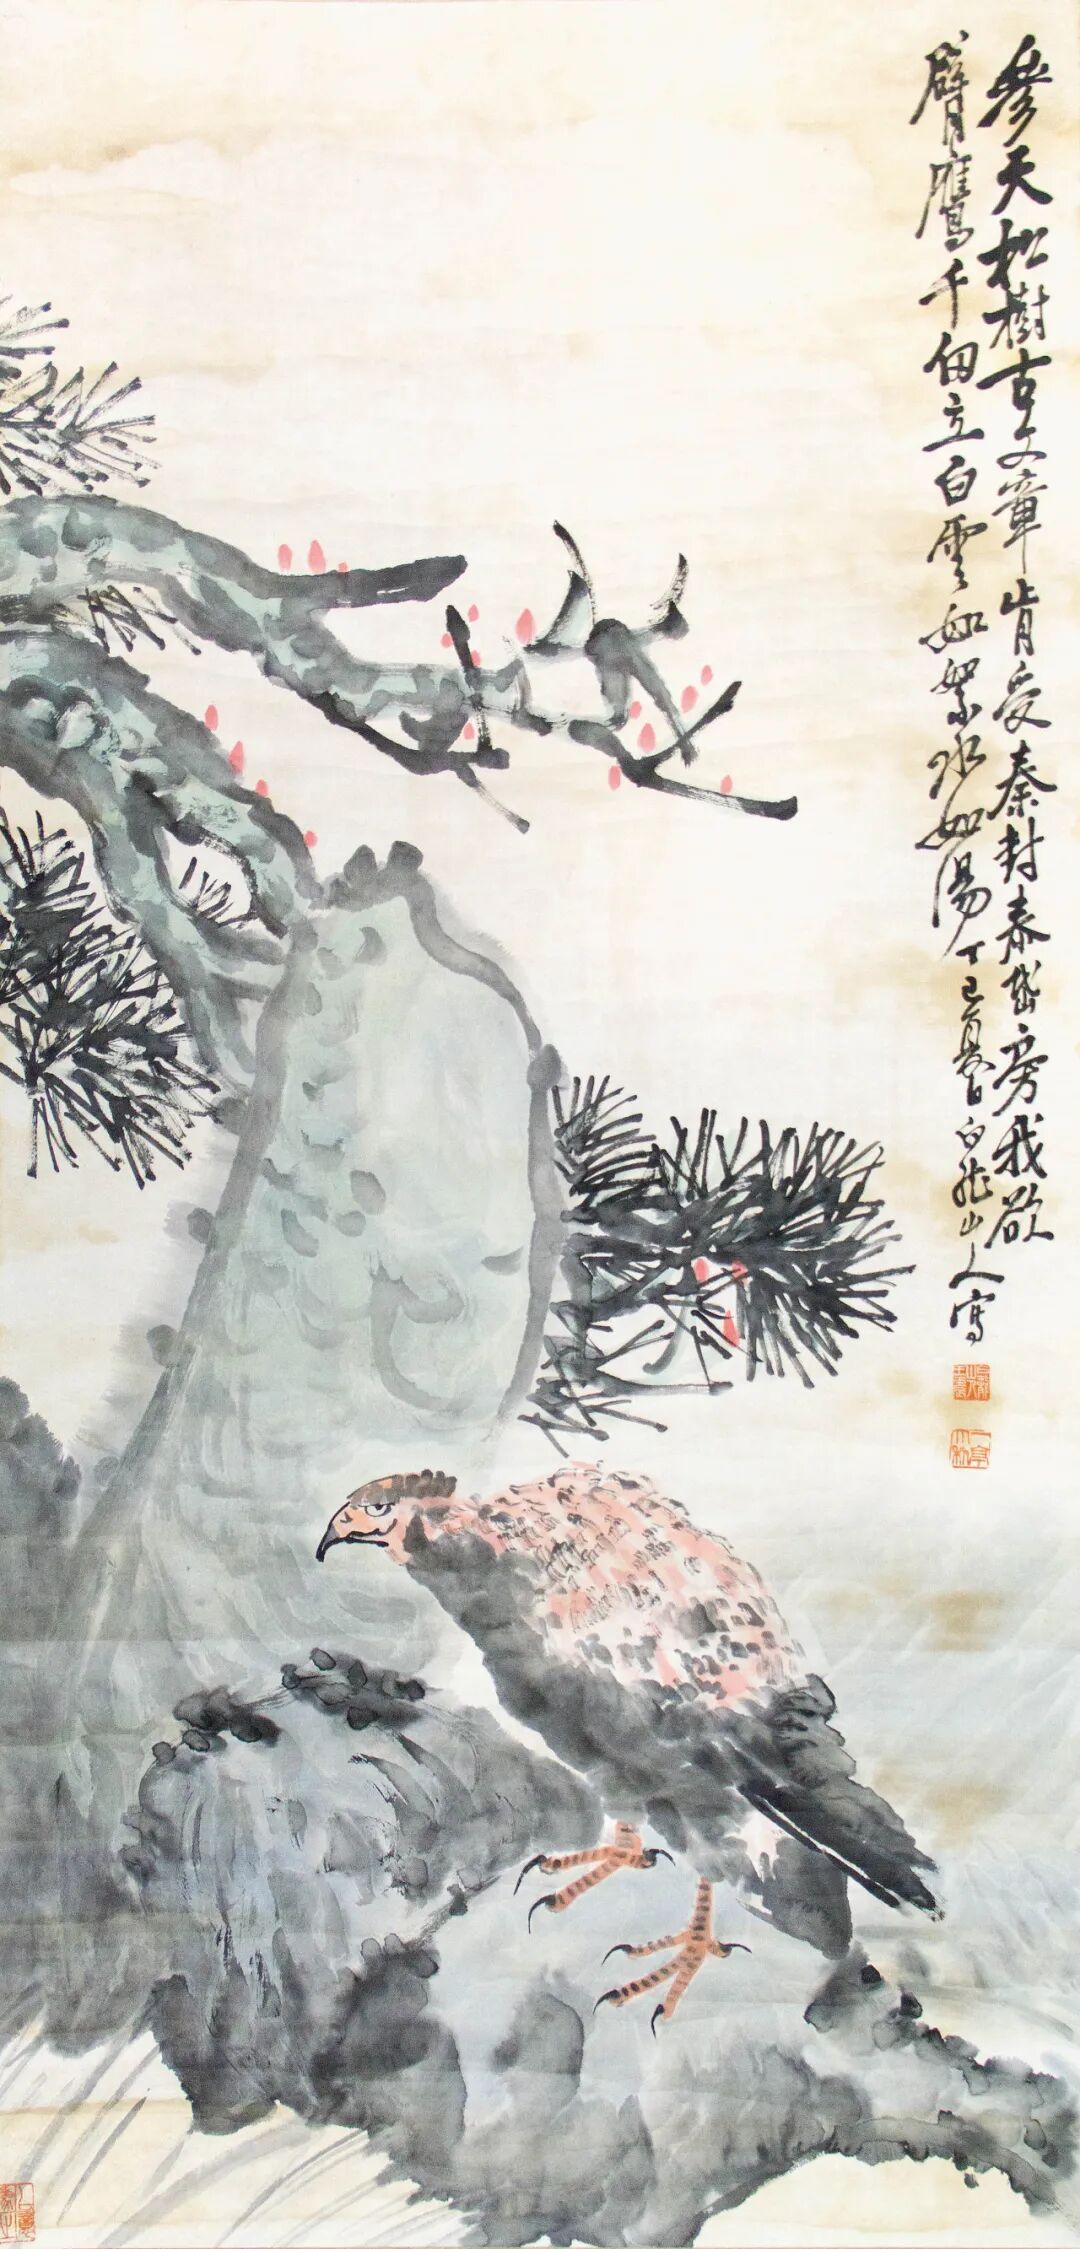 參天松樹古文章肯受秦封泰岱旁我欲
臂鷹千仞立白雲如絮水如湯丁巳夏日白龍山人寫
王震
一亭